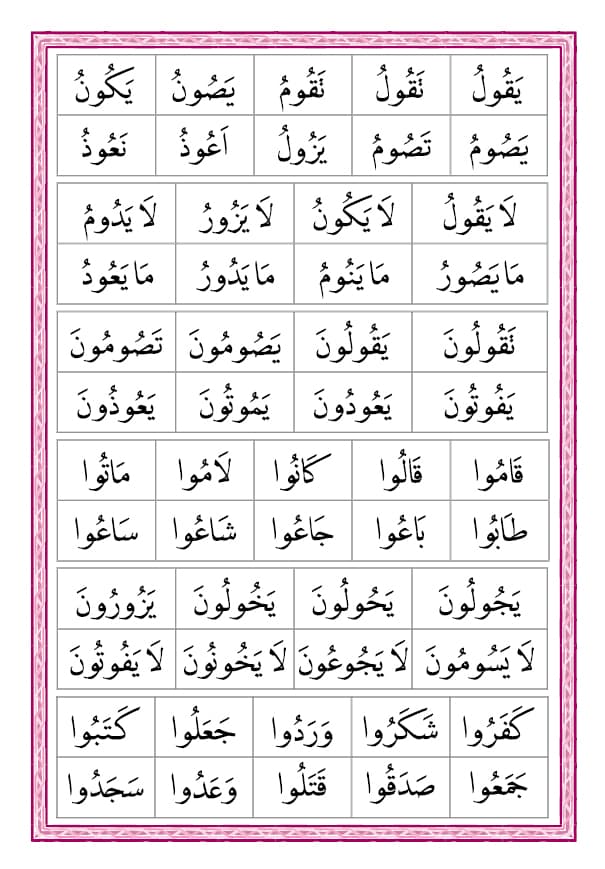 يَقُولُ نَقُولُ نَقُومُ يَصُونُ يَكُونُ
يَصُومُ تَصُومُ يَزُولُ اَعُوذُ نَعُوذُ
لَا يَقُولُ لَا يَكُونُ لَا يَزُورُ لَا يَدُومُ
مَا يَصُورُ مَا يَنُومُ مَا يَدُورُ مَا يَعُودُ
نَقُولُونَ يَقُولُونَ يَصُومُونَ تَصُومُونَ
يَفُوتُونَ يَعُودُونَ يَمُوتُونَ يَعُوذُونَ
قَامُوا قَالُوا كَانُوا لَامُوا مَاتُوا
طَابُوا بَاعُوا جَاعُوا شَاعُوا سَاعُوا
يَجُولُونَ يَحُولُونَ يَخُولُونَ يَزُورُونَ
لَا يَسُومُونَ لَا يَجُوعُونَ لَا يَخُونُونَ لَا يَفُوتُونَ
كَفَرُوا شَكَرُوا وَرَدُوا جَعَلُوا كَتَبُوا
جَمَعُوا صَدَقُوا قَتَلُوا وَعَدُوا سَجَدُوا